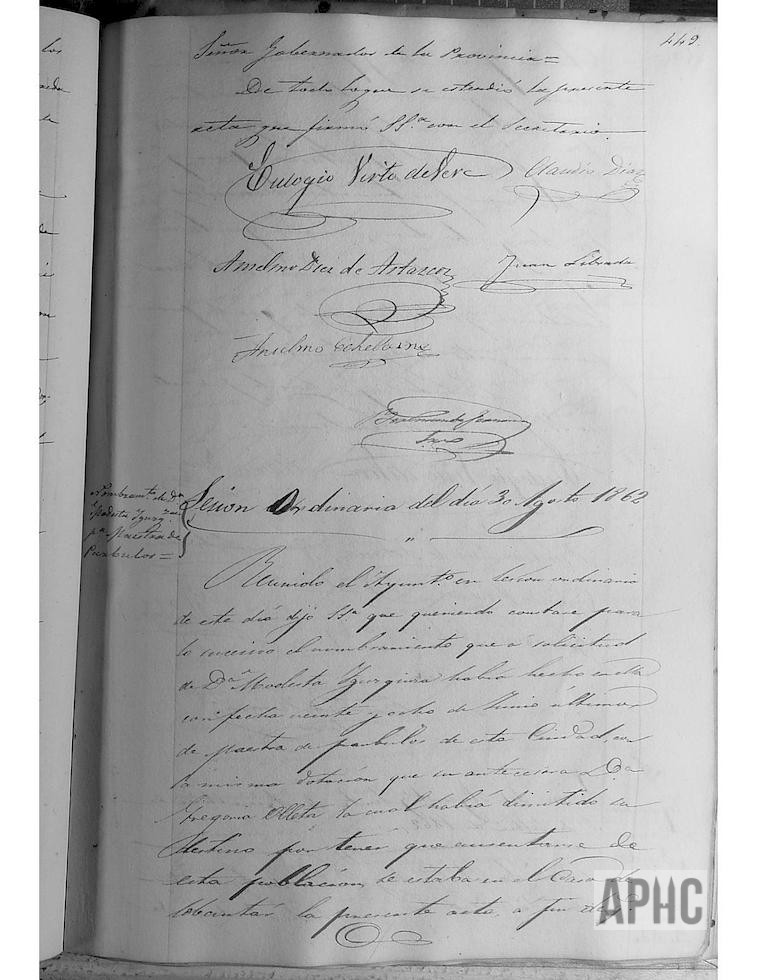 449.
Señor Gobernador de la Provincia=
De todo lo que se estendió la presente
acta que firmó SSª con el Secretario.
Eulogio Virto de Vera Claudio Diaz
Anselmo Diez de Artazcoz Juan Librada
Anselmo
Sesion Ordinaria del día 30 Agosto 1862
Nombramto. de Dª
Modesta
pª Maestra de
Parbulos=
Reunido el Ayuntº. en sesion ordinaria
de este día dijo SSª que queriendo constase para
lo sucesivo el nombramiento que a solicitud
de Dª Modesta había hecho en ella
con fecha veinte y ocho de Junio último
de Maestra de parbulos de esta Ciudad, con
la misma dotación que su antecesora Dª
Gregoria Olleta la cual había dimitido su
destino por tener que ausentarse de
esta población, se estaba en el Caso de
lebantar la presente acta, a fin de
APHC